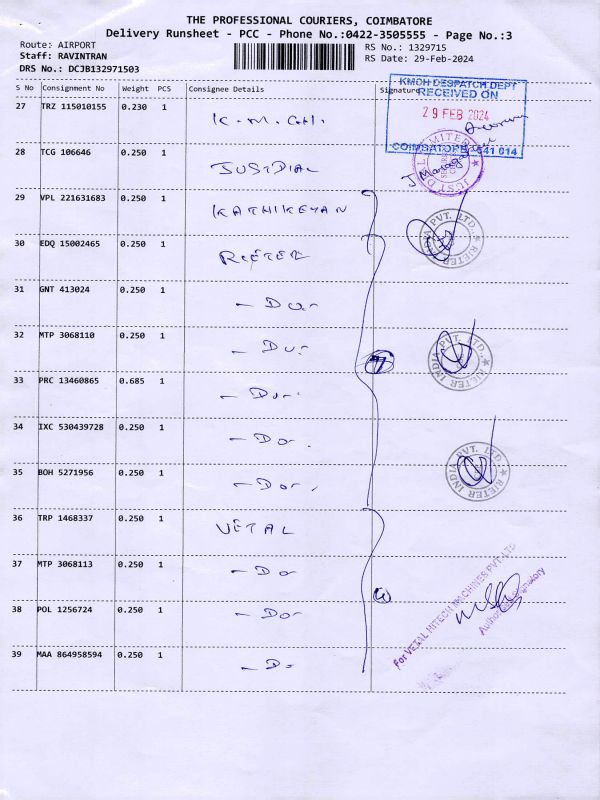 THE PROFESSIONAL COURIERS, COIMBATORE
Delivery Runsheet - PCC - Phone No.:0422-3505555 - Page No.:3
Route: AIRPORT
RS No.: 1329715
Staff: RAVINTRAN
RS Date: 29-Feb-2024
DRS No.: DCJB132971503
S No Consignment No Weight PCS Consignee Details Signature
27 TRZ 115010155 0.230 1 K.M.C.H.
KMCH DESPATCH DEPT
RECEIVED ON
29 FEB 2024
COIMBATORE - 641 014
28 TCG 106646 0.250 1 JUSTDIAL
JUST DIAL LIMITED
29 VPL 221631683 0.250 1 KATHIKEYAN
30 EDQ 15002465 0.250 1 RIETER
RIETER INDIA PVT. LTD.
31 GNT 413024 0.250 1 - Do -
32 MTP 3068110 0.250 1 - Do -
7
RIETER INDIA PVT. LTD.
33 PRC 13460865 0.685 1 - Do -
34 IXC 530439728 0.250 1 - Do -
35 BOH 5271956 0.250 1 - Do -
RIETER INDIA PVT. LTD.
36 TRP 1468337 0.250 1 VETAL
37 MTP 3068113 0.250 1 - Do -
4
For VETAL HITECH MACHINES PVT LTD
Authorised Signatory
38 POL 1256724 0.250 1 - Do -
39 MAA 864958594 0.250 1 - Do -